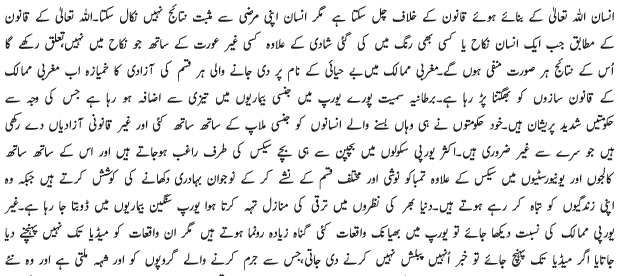 انسان اللہ تعالیٰ کے بنائے ہوئے قانون کے خلاف چل سکتا ہے مگر انسان اپنی مرضی سے مثبت نتائج نہیں نکال سکتا۔اللہ تعالیٰ کے قانون
کے مطابق جب ایک انسان نکاح یا کسی بھی رنگ میں کی گئی شادی کے علاوہ کسی غیر عورت کے ساتھ جو نکاح میں نہیں،تعلق رکھے گا
اُس کے نتائج ہر صورت منفی ہوں گے۔مغربی ممالک میں بے حیائی کے نام پر دی جانے والی ہر قسم کی آزادی کا خمیازہ اب مغربی ممالک
کے قانون سازوں کو بھگتنا پڑ رہا ہے۔برطانیہ سمیت پورے یورپ میں جنسی بیماریوں میں تیزی سے اضافہ ہو رہا ہے جس کی وجہ سے
حکومتیں شدید پریشان ہیں۔خود حکومتوں نے ہی وہاں بسنے والے انسانوں کو جنسی ملاپ کے ساتھ ساتھ کئی اور غیر قانونی آزادیاں دے رکھی
ہیں جو سرے سے غیر ضروری ہیں۔اکثر یورپی سکولوں میں بچپن سے ہی بچے سیکس کی طرف راغب ہوجاتے ہیں اور اس کے ساتھ ساتھ
کالجوں اور یونیورسٹیوں میں سیکس کے علاوہ تمباکو نوشی اور مختلف قسم کے نشے کر کے نوجوان بہادری دکھانے کی کوشش کرتے ہیں جبکہ وہ
اپنی زندگیوں کو تباہ کر رہے ہوتے ہیں۔دنیا بھر کی نظروں میں ترقی کی منازل تہہ کرتا ہوا یورپ سنگین بیماریوں میں ڈوبتا جا رہا ہے۔غیر
یورپی ممالک کی نسبت دیکھا جائے تو یورپ میں بھیانک واقعات کئی گناہ زیادہ رونما ہوتے ہیں مگر ان واقعات کو میڈیا تک نہیں پہنچنے دیا
جاتایا اگر میڈیا تک پہنچ جائے تو خبر اُنہیں پبلش نہیں کرنے دی جاتی،جس سے جرم کرنے والے گروپوں کو اور شہہ ملتی ہے اور وہ نئے